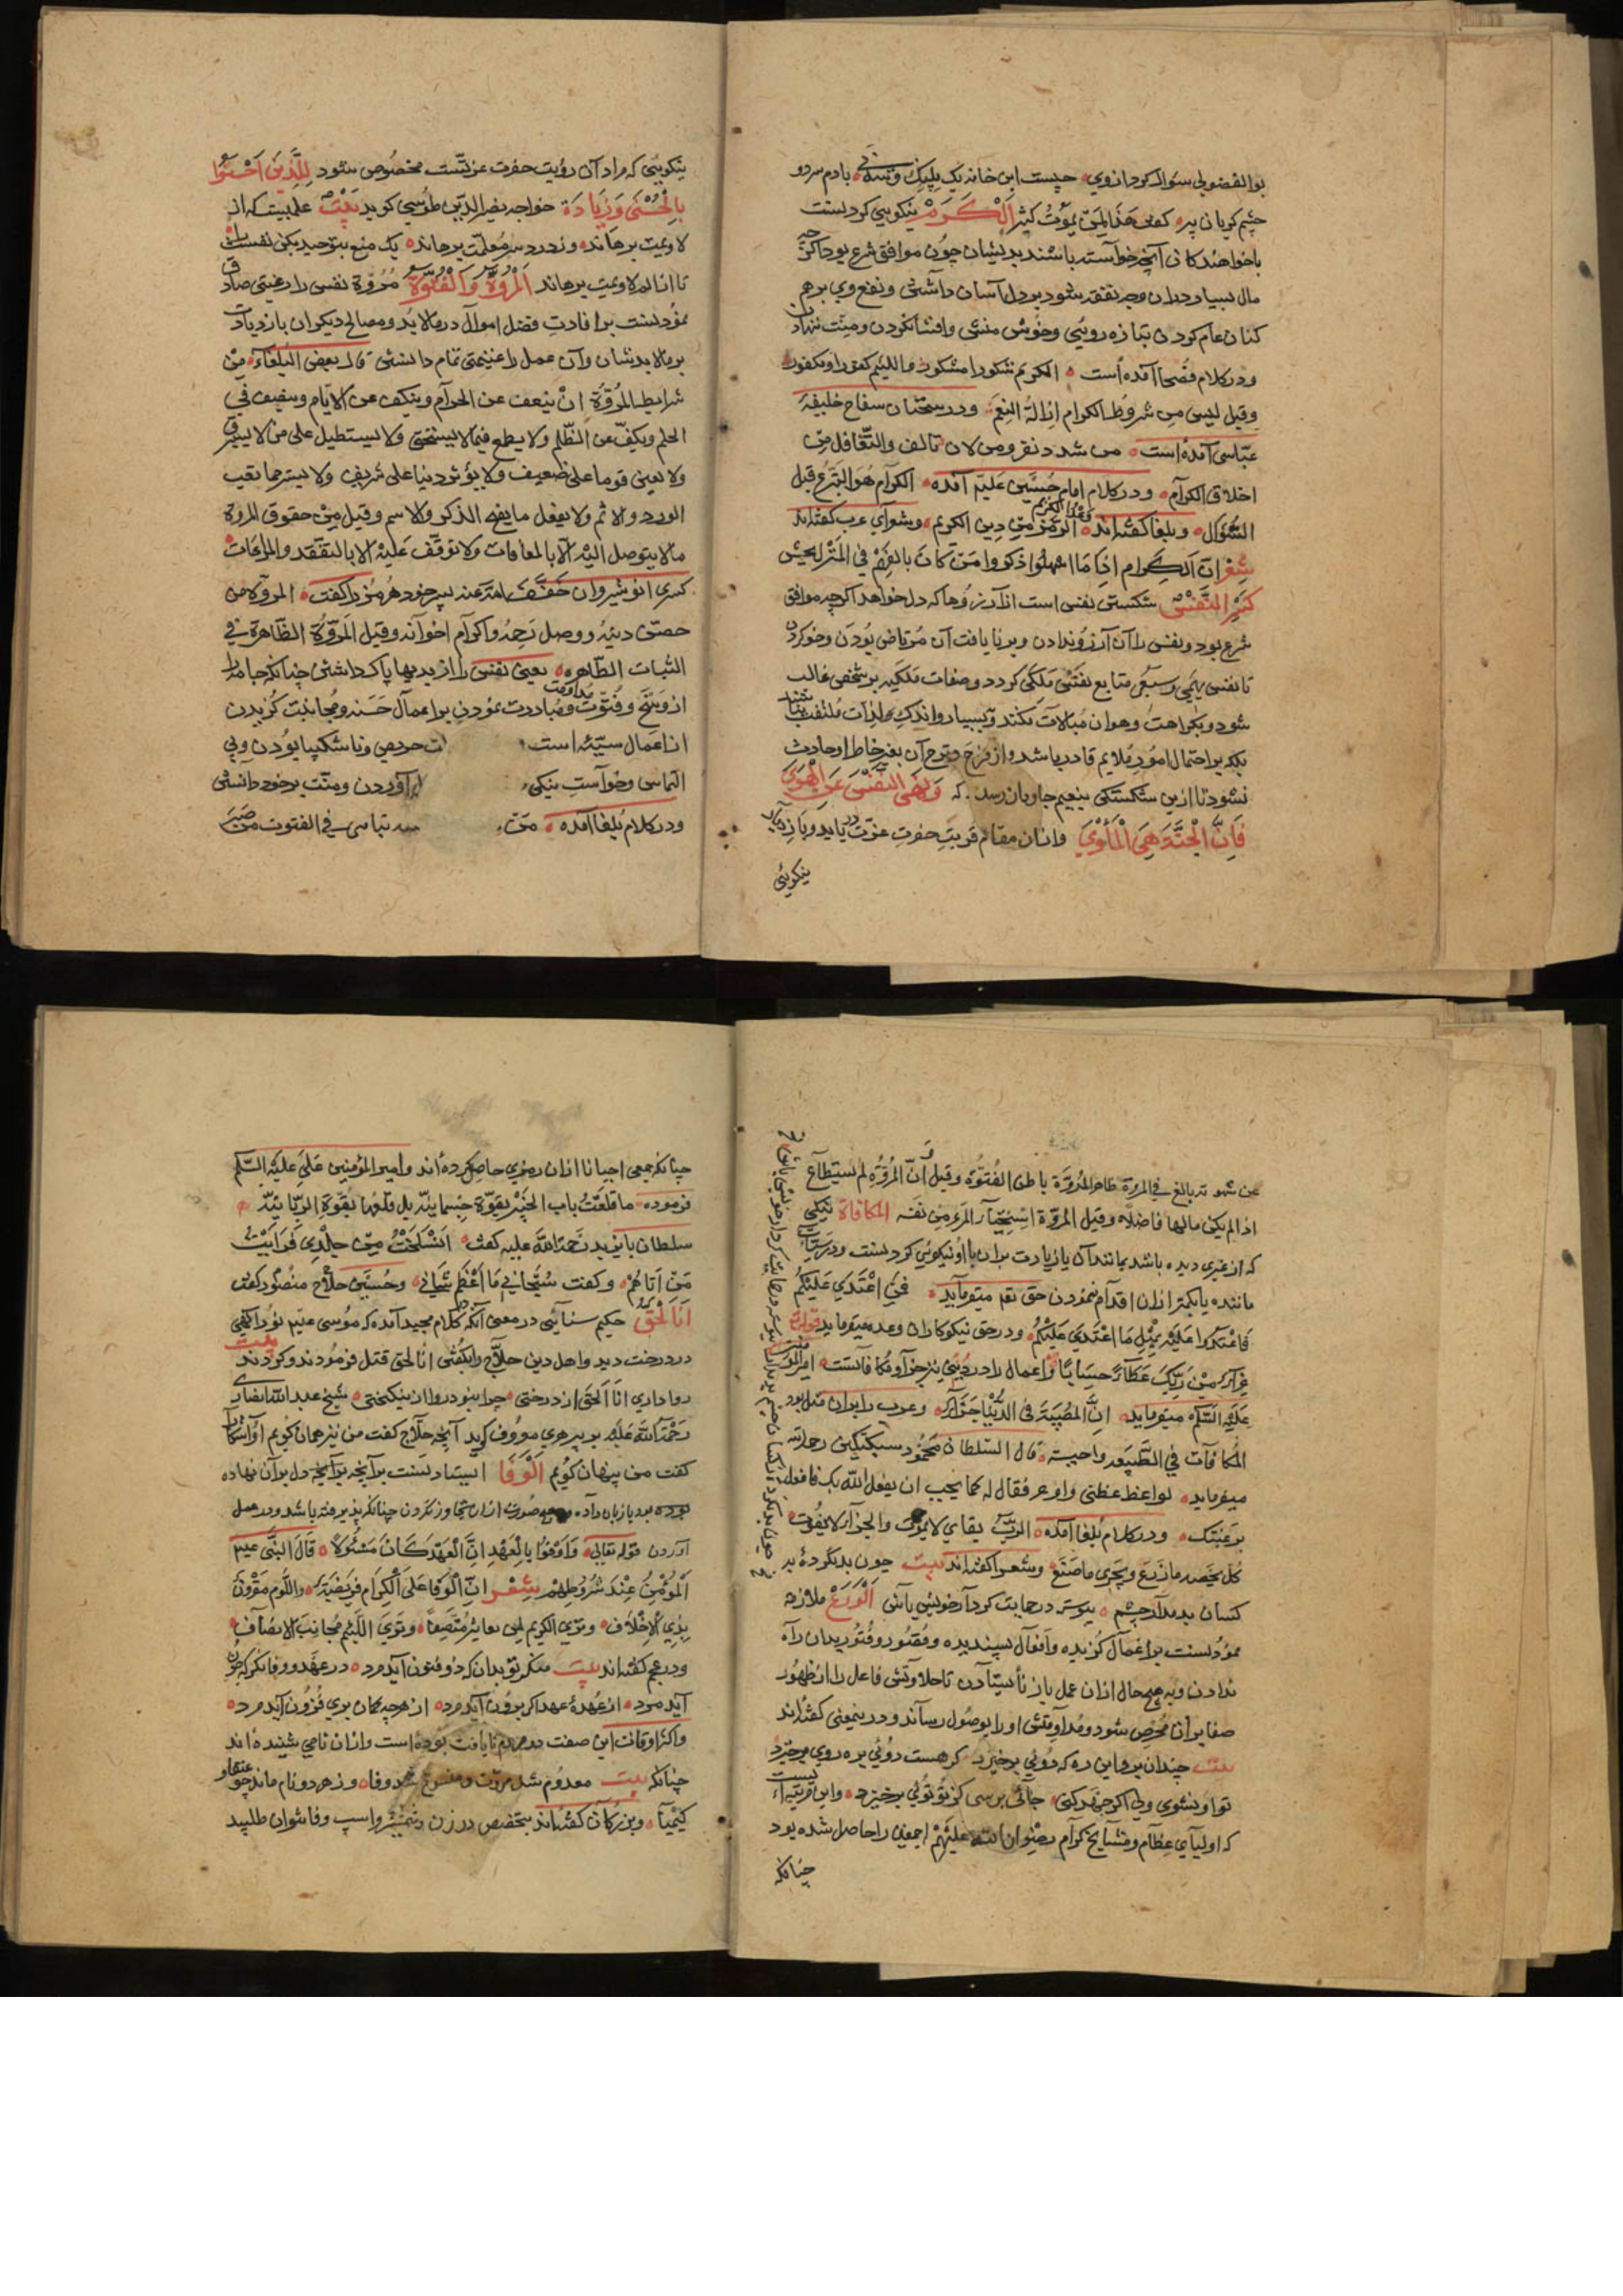 بوالفضولی سؤال کرد از وی چیست این خانه یک بلپک و سه پی با دم سرد و
چشم گریان پیر گفت هذا لمن یموت کثیر الکرم نیکویی کردنست
با خواهندگان آنچه خواسته باشند بدیشان چون موافق شرع بود اگرچه
مال بسیار دران وجه نفقه شود بر دل آسان داشتن و نفع وی بر هم
کنان عام کردن بتازه رویی و خوش منشی و افشا نکردن و منت ننهادن
و در کلام فصحا آمده است الکریم شکورا مشکور و اللئیم کفورا و مکفور
وقیل لیس من شروط الکرام ازالة النعم و در سخنان سفاح خلیفه
عباسی آمده است من شدد نفر و من لان تالف والتغافل من
اخلاق الکرام و در کلام امام حسین علیه آمده الکرام هو التبرع قبل
السؤال و بلغا گفته‌اند وعد الکریم الزم من دین الکریم و شعرای عرب گفته‌اند
شعر ان الکرام اذا ما اسهلوا ذکروا من کان یالفهم فی المنزل الخشن
کسر النفس شکستن نفس است از آرزوها که دل خواهد اگرچه موافق
شرع بود و نفس را آن آرزو ندادن و بر نایافت آن مرتاض بودن و خو کردن
تا نفس بهیمی و سبعی متابع نفس ملکی گردد و صفات ملکیه بر شخص غالب
شود و بکراهت و هوان مبالات نکند و ببسیار و اندک لذات ملتفت نباشد
بلکه بر احتمال امور ملایم قادر باشد و از فرح و ترح آن بغیر خاطر او حادث
نشود تا ازین شکستگی بنعیم جاودان رسد که ونهی النفس عن الهوی
فان الجنة هی المأوی و ازان مقام قربت حضرت عزت دریابد و بازدیاد
نیکوئی
نیکوئی که مراد آن رؤیت حضرت عزتست مخصوص شود للذین احسنوا
بالحسنی وزیادة خواجه نصیر الدین طوسی گوید بیت علمیت که از
لاونعمت برهاند وز درد سر معلمت برهاند یک منع بتوحید بکن نفست را
تا از الم لاونعمت برهاند المروة والفتوة مروة نفس را رغبتی صادق
نمودنست بر افادت فضل اموال در مالابد و مصالح دیگران بازدیادت
بر مالابدشان و آن عمل را غنیمتی تمام دانستن قال بعض البلغاء من
شرایط المروة ان یتعفف عن الحرام ویتکف عن الاثام وینصف فی
الحلم ویکف عن الظلم ولا یطمع فیما لا یستحق ولا یستطیل علی من لا یسترق
ولا یعین قوما علی ضعیف ولا یؤثر دنیا علی شریف ولا یستر ما یعقب
الوزر والاثم ولا یفعل ما یقبح الذکر والاسم وقیل من حقوق المروة
ما لا یتوصل الیه الا بالمعافات ولا توقف علیه الا بالتفقد والمراعات
کسری انوشیروان خفف الله عنه پسر خود هرمز را گفت المروة من
حصن دینه ووصل رحمه واکرام اخوانه وقیل المروة الظاهرة فی
الثیاب الطاهره یعنی نفس را از بدیها پاک داشتن چنانکه جامه را
از وسخ و فتوت مداومت و مبادرت نمودن بر اعمال حسنه و مجانبت گزیدن
از اعمال سیئه است ات حرصی و ناشکیبا بودن و بی
التماس و خواست نیکی ‌آوردن و منت بر خود دانستن
و در کلام بلغا آمده من تباسی فی الفتوت من صبر
عن شهوته بالغ فی المروة ظاهر المروة باطن الفتوة وقیل ان المروة لم تستطاع
اذا لم یکن مالها فاضلا وقیل المروة استحیاء المرء من نفسه المکافاة نیکی
که از غیری دیده باشد بمانند آن یا زیادت بران با او نیکویی کردنست و در سیئات
ماننده یا کمتر ازان اقدام نمودن حق تعالی میفرماید فمن اعتدی علیکم
فاعتدوا علیه بمثل ما اعتدی علیکم و در حق نیکوکاران وعده میفرماید قوله تعالی
جزاء من ربک عطاء حسابا و اعمال را در دنیی نیز جزا و مکافاتست امیر المؤمنین
علیه السلم میفرماید ان المصیبة فی الدنیا جزاء و عرب را بدان مثل بود
المکافات فی الطبیعه واجبة قال السلطان محمود سبکتکین رحمه الله
میفرماید لواعظ عظنی و اوعز فقال له کما یحب ان یفعل الله بک فافعل
برعیتک و در کلام بلغا آمده الرب یقای لا یموت والجزاء لا یفوت
کل یحصد ما زرع ویجزی ما صنع و شعرا گفته‌اند بیت چون بد نکردهٔ به
کسان بد مدار چشم پیوسته در حمایت کردار خویش باش الورع ملازمه
نمودنست بر اعمال گزیده و افعال پسندیده و قصور و فتور بدان راه
ندادن و به هیچ حال ازان عمل باز نایستادن تا حلاوتش فاعل را از ظهور
صفا بران محرص شود و مداومتش او را بوصول رساند و درینمعنی گفته‌اند
بیت چندان برو این ره که دوئی برخیزد گر هست دوئی بره‌روی برخیزد
تو او نشوی ولی اگر جهد کنی جائی برسی کز تو توئی برخیزد و این مرتبه ایست
که اولیای عظام و مشایخ کرام رضوان الله علیهم اجمعین را حاصل شده بود
چنانکه
چنانکه جمعی احیانا ازان رمزی حاصل کرده‌اند و امیر المؤمنین علی علیه السلم
فرموده ما قلعت باب الخیبر بقوة جسمانیة بل قلعها بقوة الربانیة
سلطان بایزید رحمة الله علیه گفت انسلخت من جلدی فرایت
من انا هو و گفت سبحانی ما اعظم شانی و حسین حلاج منصور گفت
انا الحق حکیم سنائی در معنی آنکه در کلام مجید آمده که موسی علیه نور الهی
در درخت دید و اهل دین حلاج را بگفتن انا الحق قتل فرمودند و کردند بیت
روا داری انا الحق از درختی چرا نبود روا از نیکبختی شیخ عبد الله انصاری
رحمة الله علیه بر پیر هری معروف گوید آنچه حلاج گفت من نیز همان گویم او آشکارا
گفت من پنهان گویم الوفا ایستادنست بر آنچه دل بر آن نهاده
بوده بود یا زبان داده و بهیچ صورت ازان تجاوز نکردن چنانکه پذیرفته باشد و در عمل
آوردن قوله تعالی واوفوا بالعهد ان العهد کان مسئولا قال النبی علیه
المؤمن عند شروطهم شعر ان الوفا علی الکرام فریضة واللؤم مقرون
بذی الاخلاف وتری الکریم لمن یعاشر منصفا وتری اللئیم مجانب الانصاف
و در عجم گفته‌اند بیت منکر تو بدان که ذوفنون آید مرد در عهد و وفا نگر که چون
آید مرد از عهدهٔ عهد اگر برون آید مرد از هرچه گمان بری فزون آید مرد
و اکثر اوقات این صفت در مردم نایافت بوده است و ازان نامی شنیده‌اند
چنانکه بیت معدوم شد مروت و منسوخ شد وفا وز هر دو نام ماند چو عنقا و
کیمیا و بزرگان گفته‌اند بتخصیص در زن و شمشیر و اسب وفا نتوان طلبید